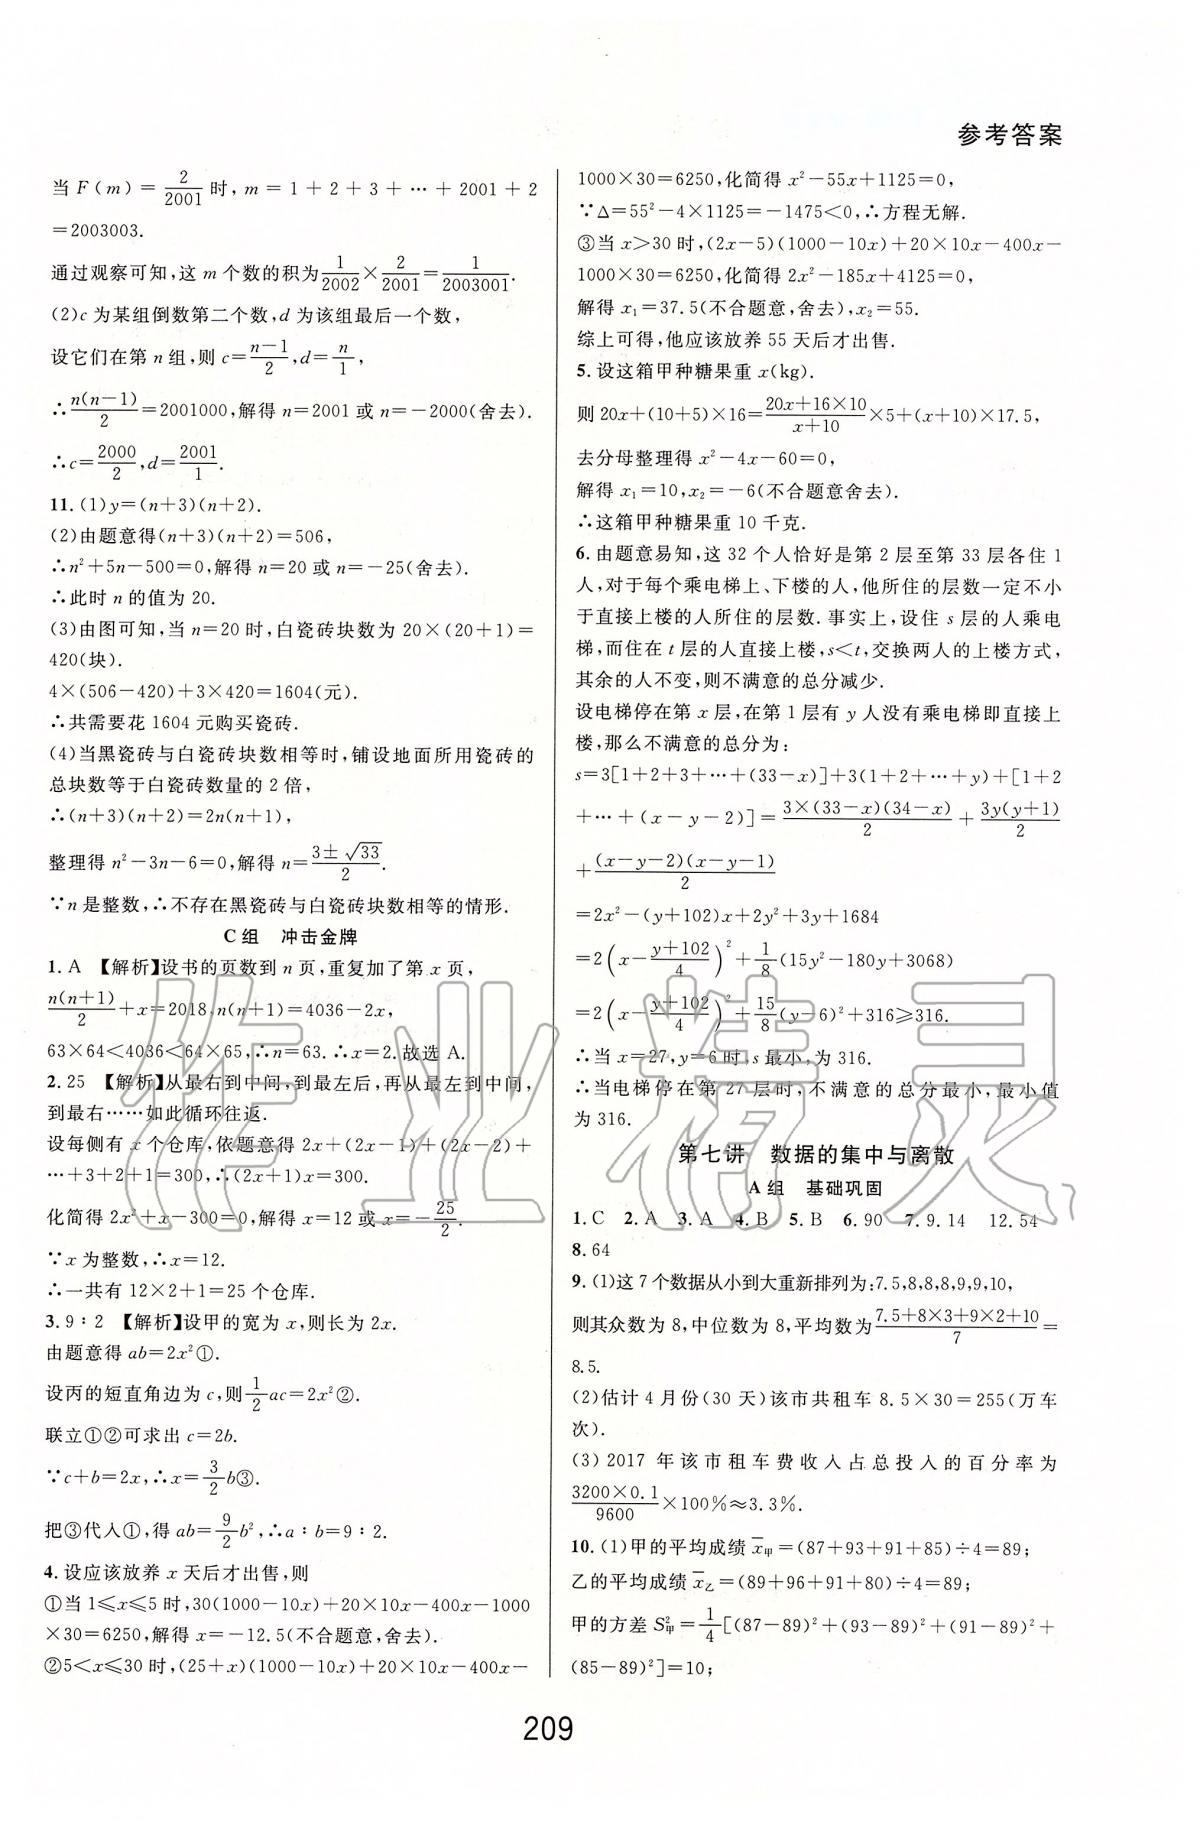 参考答案
当 F(m)=2/2001 时,m=1+2+3+…+2001+2
=2003003.
通过观察可知,这 m 个数的积为1/2002×2/2001=1/2003001.
(2)c 为某组倒数第二个数,d 为该组最后一个数,
设它们在第 n 组,则 c=(n-1)/2,d=n/1,
∴n(n-1)/2=2001000,解得 n=2001 或 n=-2000(舍去).
∴c=2000/2,d=2001/1.
11.(1)y=(n+3)(n+2).
(2)由题意得(n+3)(n+2)=506,
∴n²+5n-500=0,解得 n=20 或 n=-25(舍去).
∴此时 n 的值为 20.
(3)由图可知,当 n=20 时,白瓷砖块数为 20×(20+1)=
420(块).
4×(506-420)+3×420=1604(元).
∴共需要花 1604 元购买瓷砖.
(4)当黑瓷砖与白瓷砖块数相等时,铺设地面所用瓷砖的
总块数等于白瓷砖数量的 2 倍,
∴(n+3)(n+2)=2n(n+1),
整理得 n²-3n-6=0,解得 n=(3±√33)/2.
∵n 是整数,∴不存在黑瓷砖与白瓷砖块数相等的情形.
C 组 冲击金牌
1. A 【解析】设书的页数到 n 页,重复加了第 x 页,
n(n+1)/2+x=2018,n(n+1)=4036-2x,
63×64<4036<64×65,∴n=63.∴x=2.故选 A.
2. 25 【解析】从最右到中间,到最左后,再从最左到中间,
到最右……如此循环往返.
设每侧有 x 个仓库,依题意得 2x+(2x-1)+(2x-2)+
…+3+2+1=300,∴(2x+1)x=300.
化简得 2x²+x-300=0,解得 x=12 或 x=-25/2.
∵x 为整数,∴x=12.
∴一共有 12×2+1=25 个仓库.
3. 9∶2 【解析】设甲的宽为 x,则长为 2x.
由题意得 ab=2x²①.
设丙的短直角边为 c,则1/2ac=2x²②.
联立①②可求出 c=2b.
∵c+b=2x,∴x=3/2b③.
把③代入①,得 ab=9/2b²,∴a∶b=9∶2.
4. 设应该放养 x 天后才出售,则
①当 1≤x≤5 时,30(1000-10x)+20×10x-400x-1000
×30=6250,解得 x=-12.5(不合题意,舍去).
②5<x≤30 时,(25+x)(1000-10x)+20×10x-400x-
1000×30=6250,化简得 x²-55x+1125=0,
∵Δ=55²-4×1125=-1475<0,∴方程无解.
③当 x>30 时,(2x-5)(1000-10x)+20×10x-400x-
1000×30=6250,化简得 2x²-185x+4125=0,
解得 x₁=37.5(不合题意,舍去),x₂=55.
综上可得,他应该放养 55 天后才出售.
5. 设这箱甲种糖果重 x(kg).
则 20x+(10+5)×16=(20x+16×10)/(x+10)×5+(x+10)×17.5,
去分母整理得 x²-4x-60=0,
解得 x₁=10,x₂=-6(不合题意舍去).
∴这箱甲种糖果重 10 千克.
6. 由题意易知,这 32 个人恰好是第 2 层至第 33 层各住 1
人,对于每个乘电梯上、下楼的人,他所住的层数一定不小
于直接上楼的人所住的层数.事实上,设住 s 层的人乘电
梯,而住在 t 层的人直接上楼,s<t,交换两人的上楼方式,
其余的人不变,则不满意的总分减少.
设电梯停在第 x 层,在第 1 层有 y 人没有乘电梯即直接上
楼,那么不满意的总分为:
s=3[1+2+3+…+(33-x)]+3(1+2+…+y)+[1+2
+…+(x-y-2)]=3×(33-x)(34-x)/2+3y(y+1)/2
+(x-y-2)(x-y-1)/2
=2x²-(y+102)x+2y²+3y+1684
=2(x-(y+102)/4)²+1/8(15y²-180y+3068)
=2(x-(y+102)/4)²+15/8(y-6)²+316≥316.
∴当 x=27,y=6 时,s 最小,为 316.
∴当电梯停在第 27 层时,不满意的总分最小,最小值
为 316.
第七讲 数据的集中与离散
A 组 基础巩固
1. C 2. A 3. A 4. B 5. B 6. 90 7. 9.14 12.54
8. 64
9. (1)这 7 个数据从小到大重新排列为:7.5,8,8,8,9,9,10,
则其众数为 8,中位数为 8,平均数为(7.5+8×3+9×2+10)/7=
8.5.
(2)估计 4 月份(30 天)该市共租车 8.5×30=255(万车
次).
(3)2017 年该市租车费收入占总投入的百分率为
3200×0.1/9600×100%≈3.3%.
10. (1)甲的平均成绩 x̄甲=(87+93+91+85)÷4=89;
乙的平均成绩 x̄乙=(89+96+91+80)÷4=89,
甲的方差 S²甲=1/4[(87-89)²+(93-89)²+(91-89)²+
(85-89)²]=10;
209
作业精灵